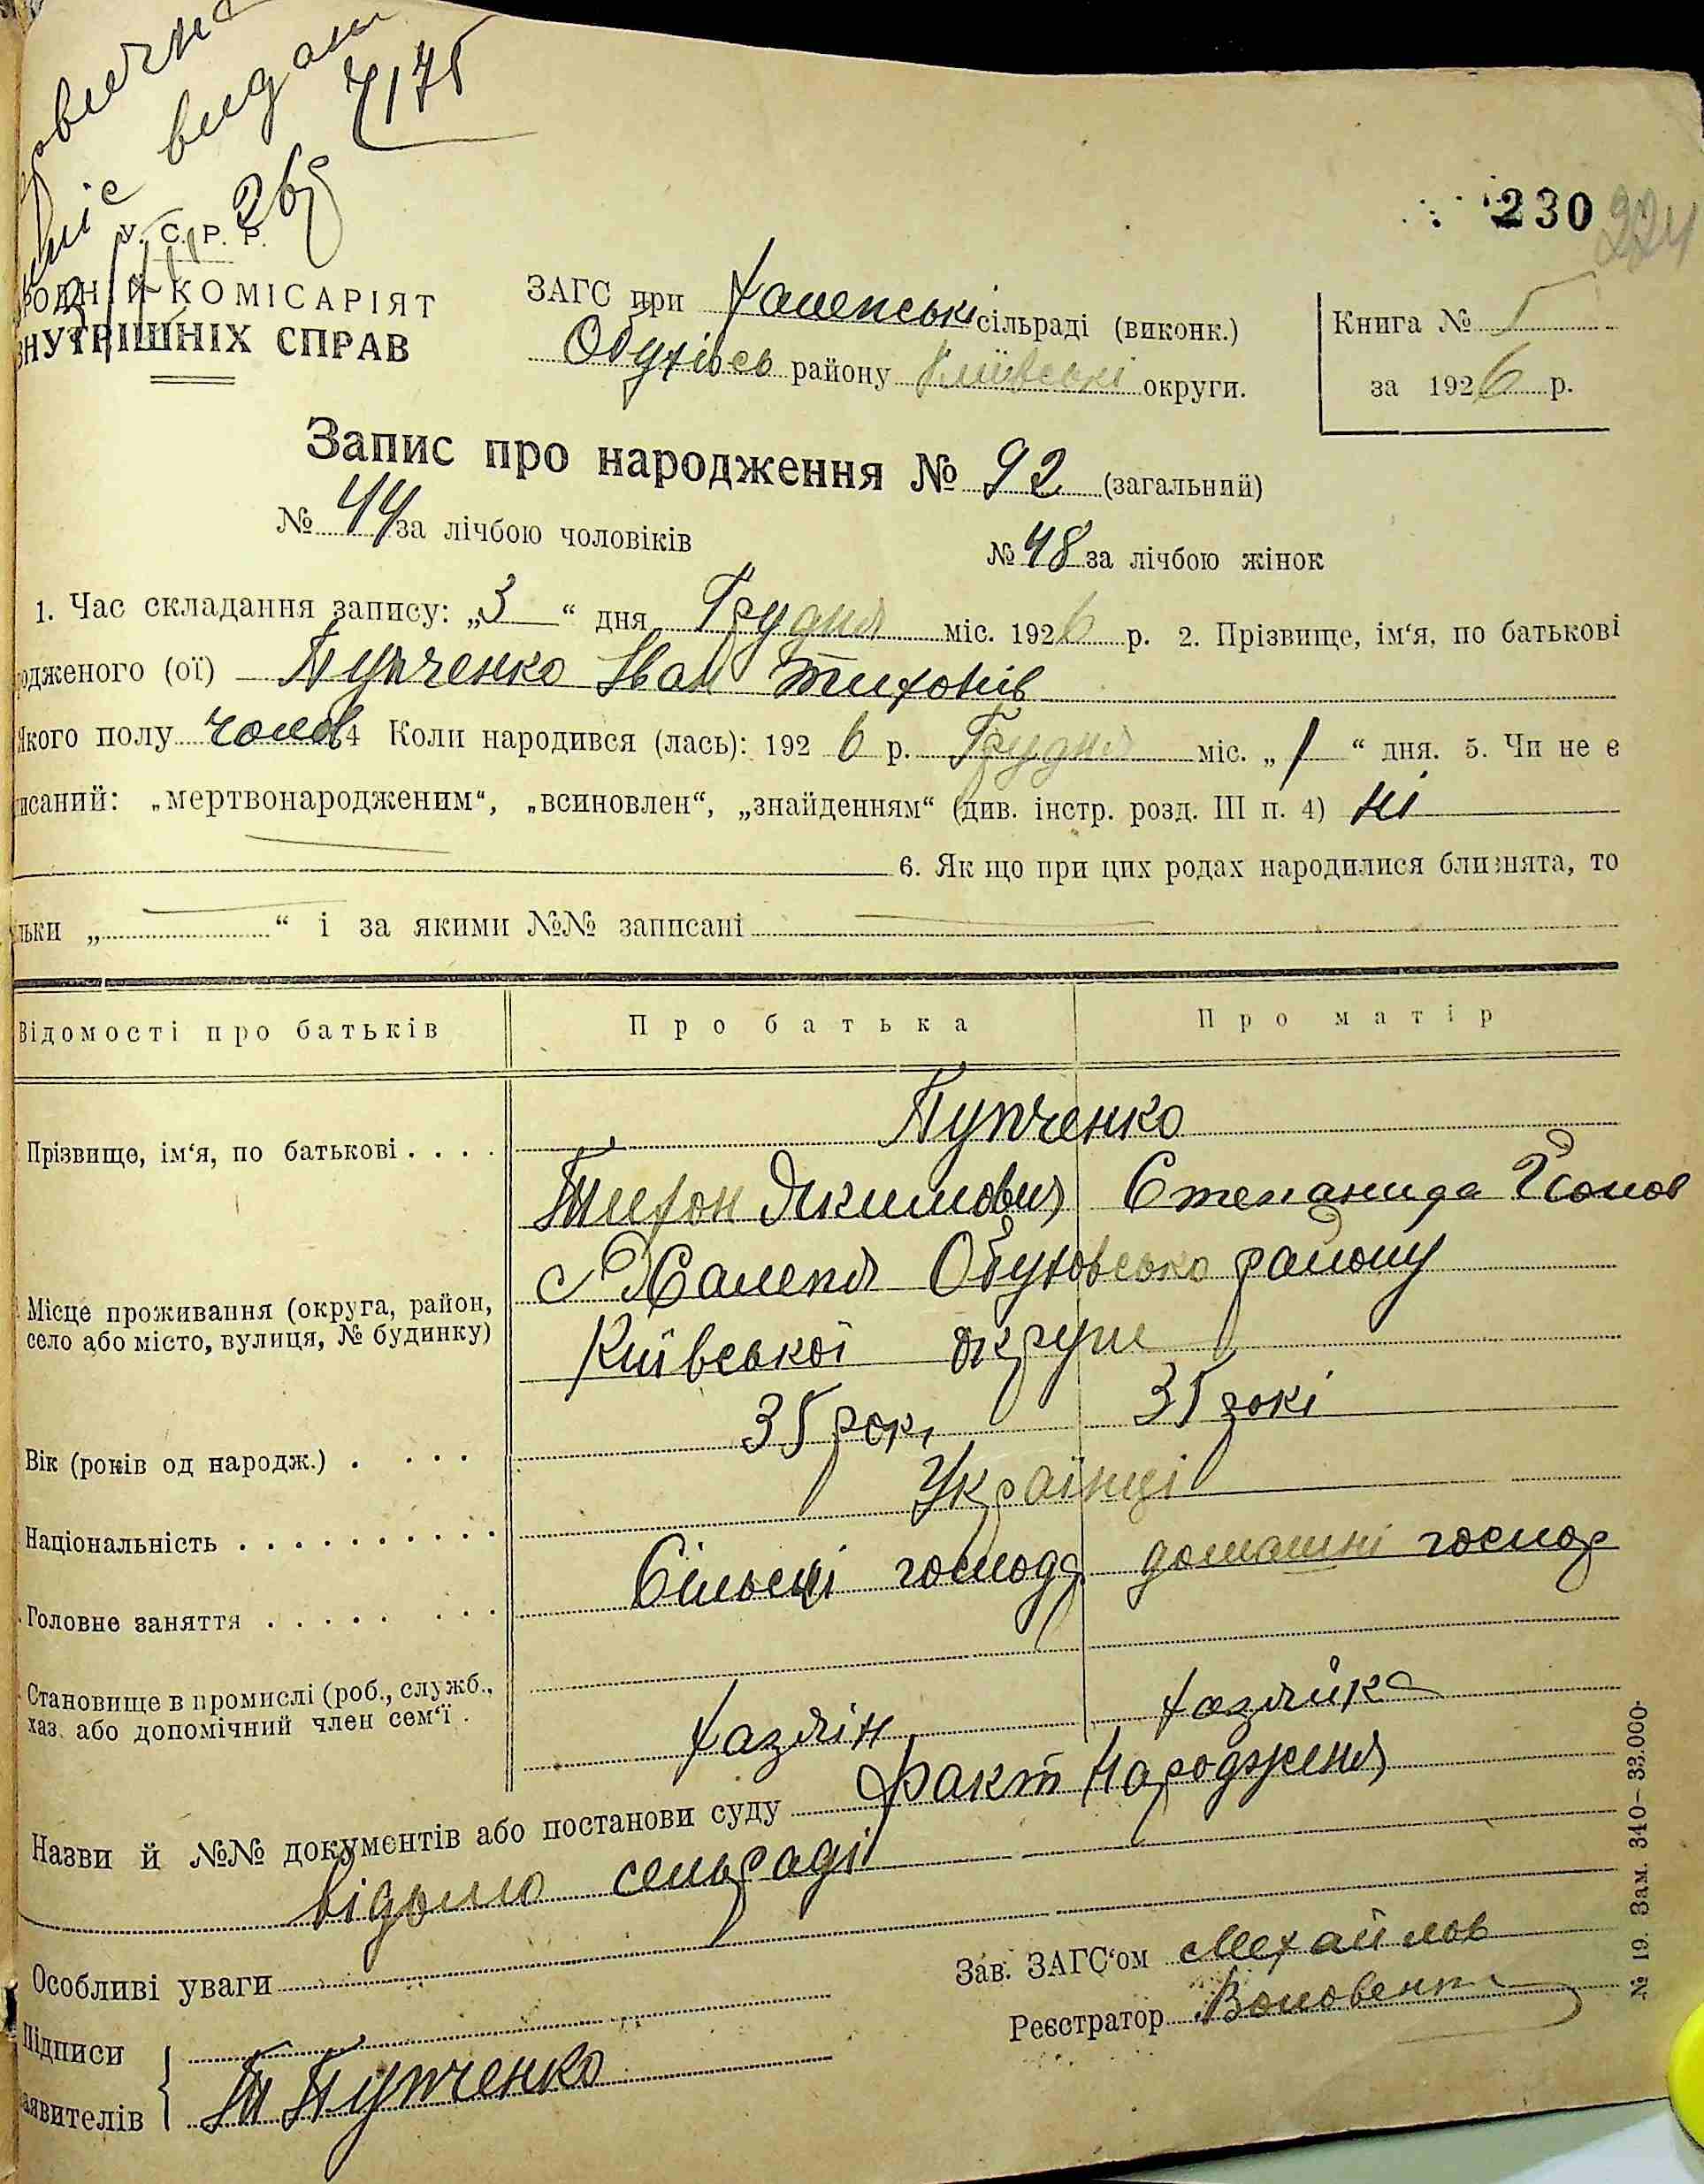 видан
7175
У. С. Р. Р.
КОМІСАРІЯТ
ВНУТРІШНІХ СПРАВ
230
224
ЗАГС при Халепські сільраді (виконк.)
Обухівсь району Київські округи.
Книга № 5
за 1926 р.
Запис про народження № 92 (загальний)
№ 44 за лічбою чоловіків
№ 48 за лічбою жінок
1. Час складання запису: „3“ дня Грудня міс. 1926 р. 2. Прізвище, ім‘я, по батькові
одженого (ої) Пупченко Іван Тихонів
Якого полу чолов 4 Коли народився (лась): 1926 р. Грудня міс. „1“ дня. 5. Чи не є
писаний: „мертвонародженим“, „всиновлен“, „знайденням“ (див. інстр. розд. III п. 4) ні
6. Як що при цих родах народилися близнята, то
льки „ “ і за якими №№ записані
Відомості про батьків Про батька Про матір
Прізвище, ім‘я, по батькові . . . . Пупченко
Тихон Якимович Степанида
с Халепя Обуховсько району
Місце проживання (округа, район,
село або місто, вулиця, № будинку)
Київської округи
Вік (років од народж.) . . . . 35 рокі 35 рокі
Національність . . . . . . . . . . Українці
Головне заняття . . . . . . . . Сільські господ домашні господ
Становище в промислі (роб., служб.,
хаз. або допомічний член сем‘ї .
хазяїн хазяйка
Назви й №№ документів або постанови суду факт народженя
відомо сельраді
Особливі уваги
Зав. ЗАГС‘ом Михайлов
Реєстратор
Підписи
аявителів
Т Пупченко
№ 19. Зам. 340–33.000